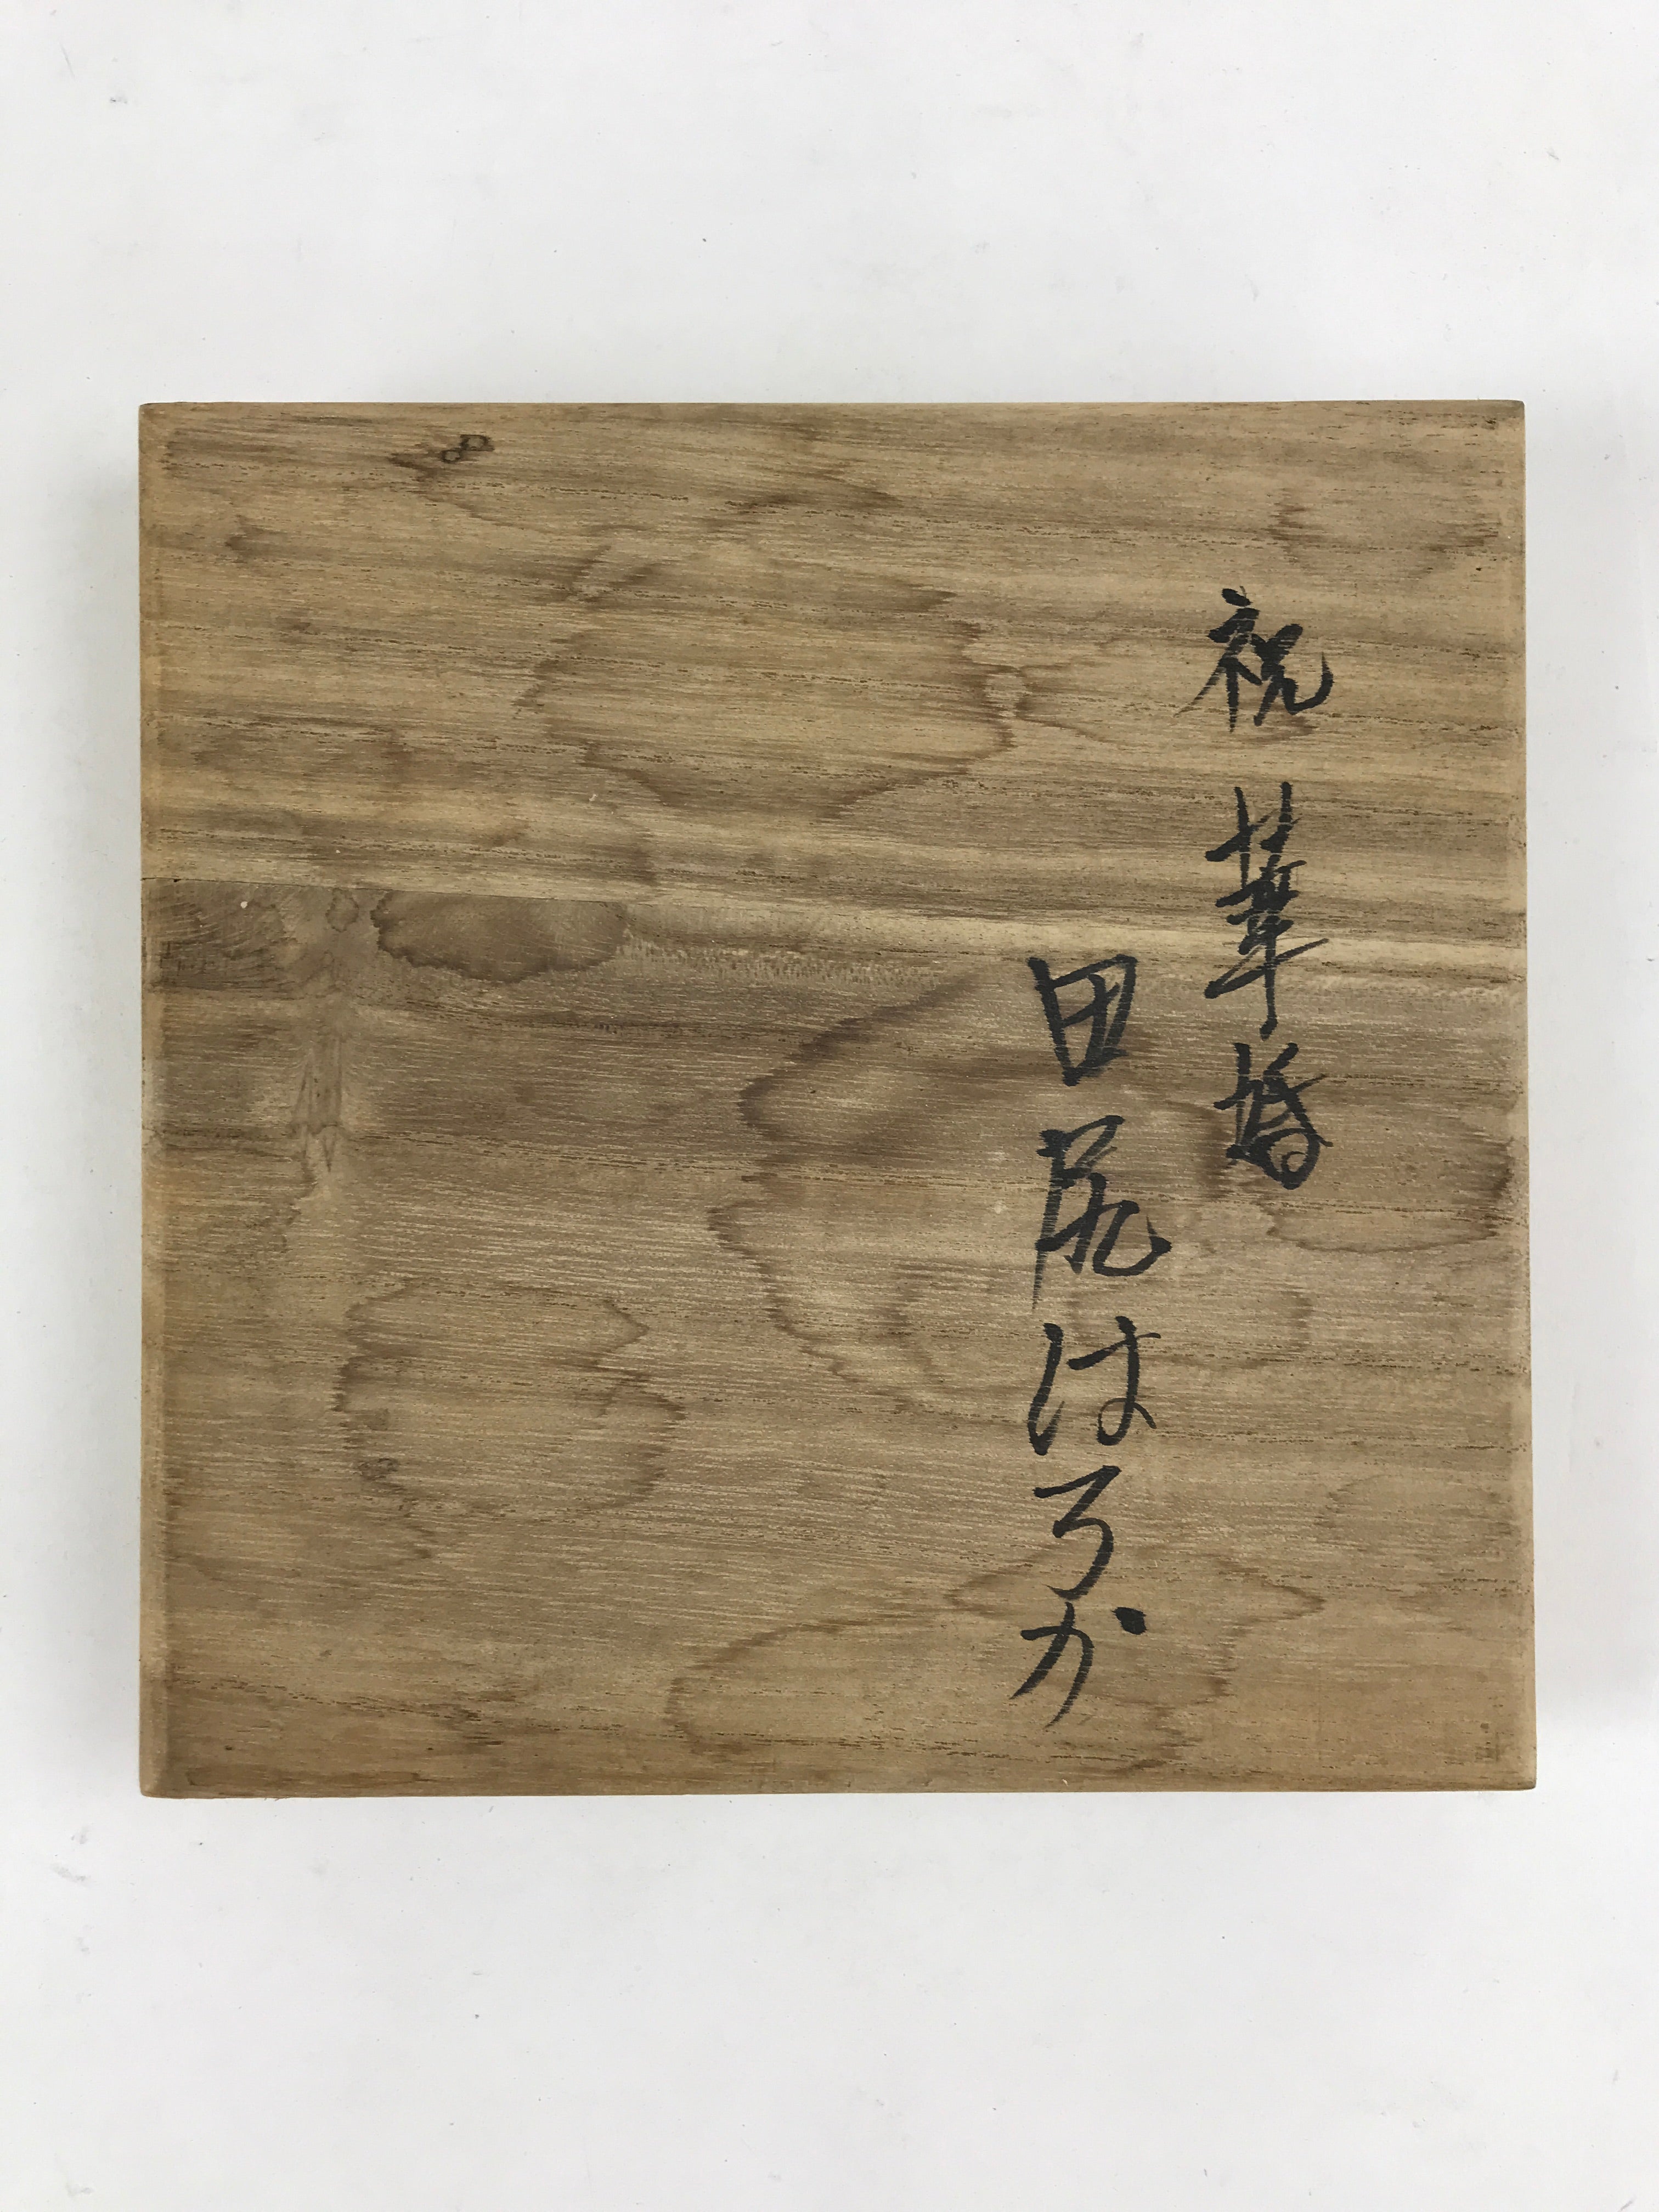 祝 華婚
田尻はるか